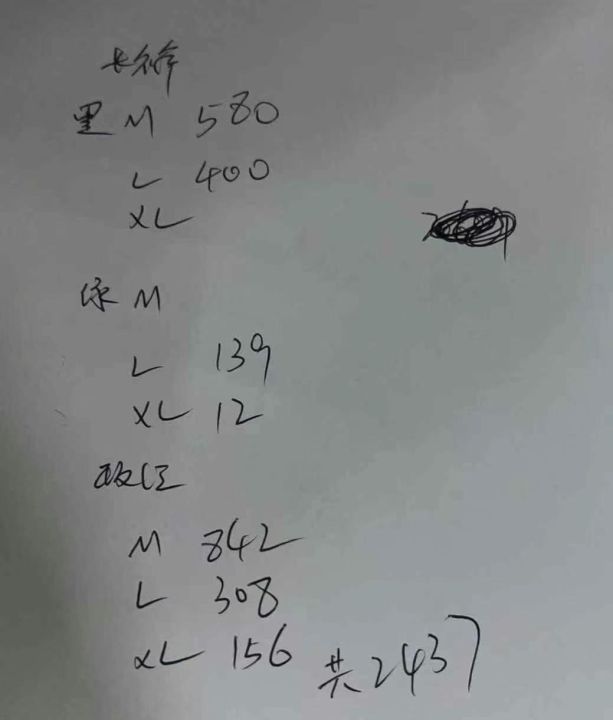 长裤
黑 M 580
L 400
XL
绿 M
L 139
XL 12
M 842
L 308
XL 156
共2437